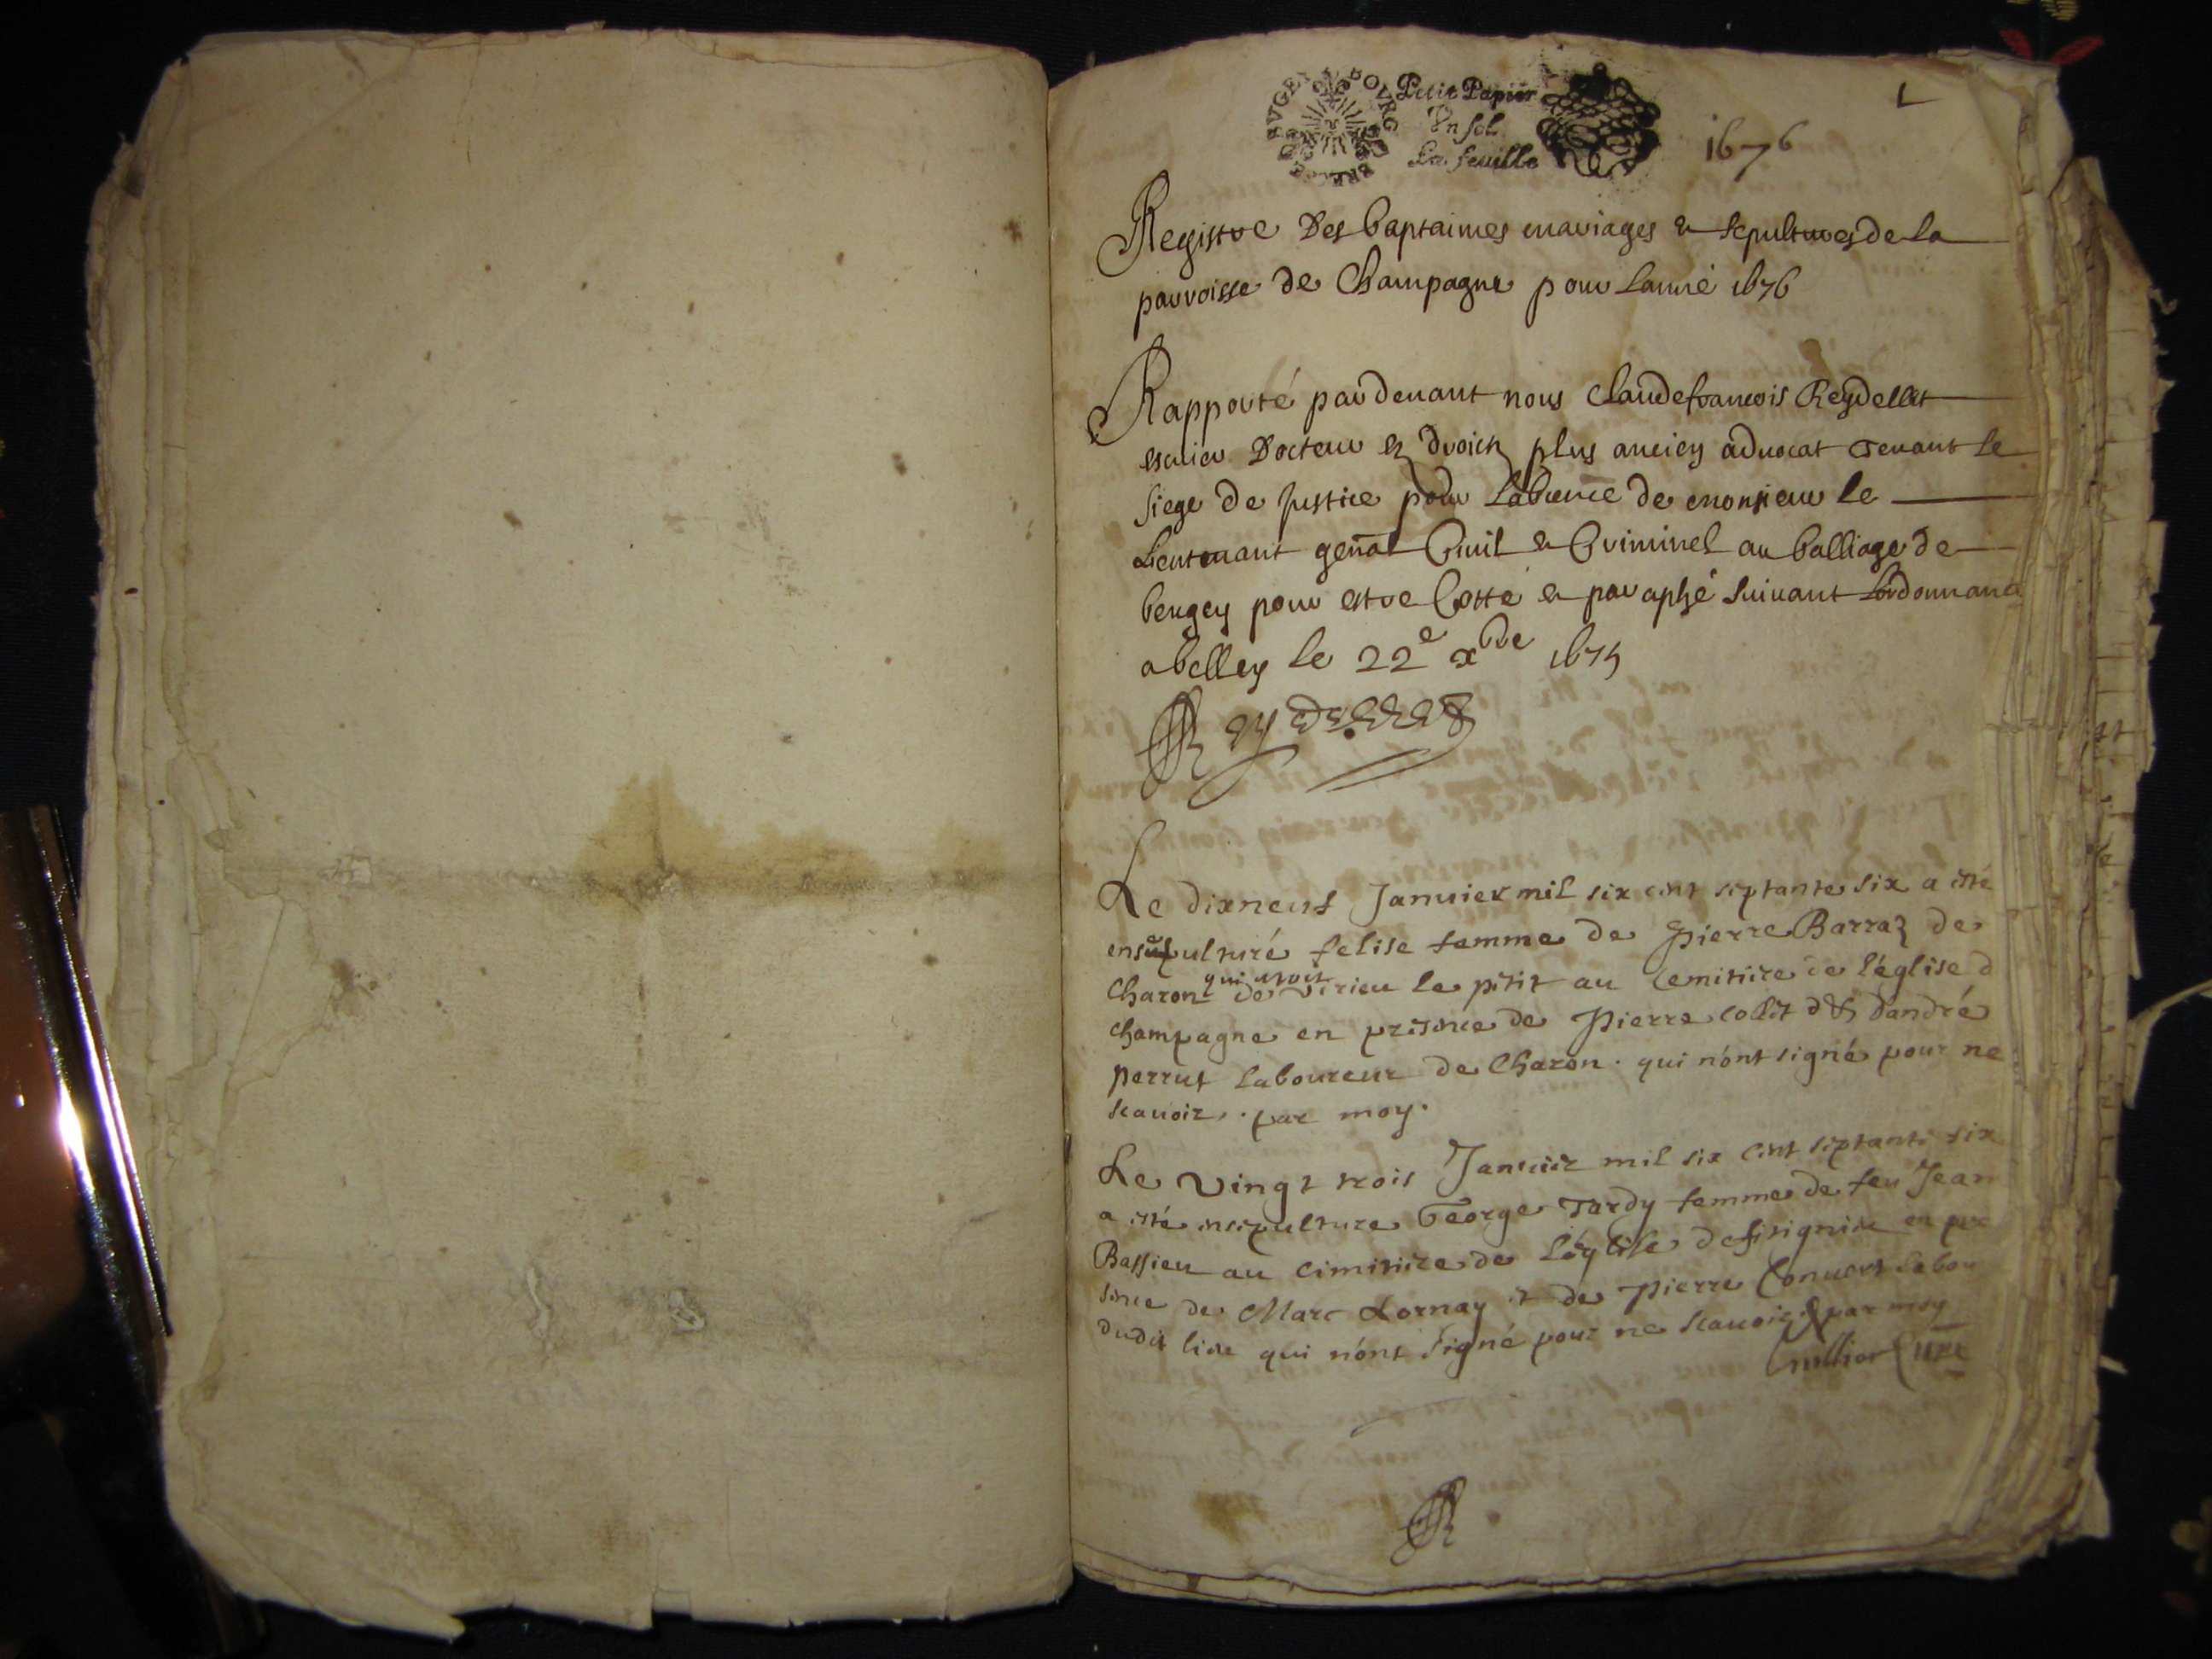 1
BVGEY BOVRG BRESSE
Petit Papier
Vn sol
La feuille
1676
Registre des baptaimes mariages & sepultures de la
parroisse de Champagne pour Lanneé 1676
Rapporté pardeuant nous Claude francois Reydellet
escuier Docteur ez droictz plus ancien aduocat tenant le
siege de Justice pour Labsence de monsieur le
Lieutenant gen̄al Ciuil & Criminel au balliage de
beugey pour estre Cotté & paraphé suiuant Lordonnance
a belley le 22e xbre 1675
Reydellet
Le dixneuf Januier mil six cent septante six a esté
ensepulturé felise femme de Pierre Barraz de
Charon qui de Virieu le petit au Cemitiere de l'église d
champagne en presence de Pierre collet & d'andré
perrut laboureur de Charon. qui n'ont signé pour ne
scauoir. par moy.
Le vingt trois Januier mil six cent septante six
a esté ensepulture George Tardy femme de feu Jean
Bassieu au cimitiere de L'église de fisignieu en pre
sence de Marc Lornay et de Pierre Conuert labou
dudit lieu qui n'ont signé pour ne scauoir & par moy
Curé